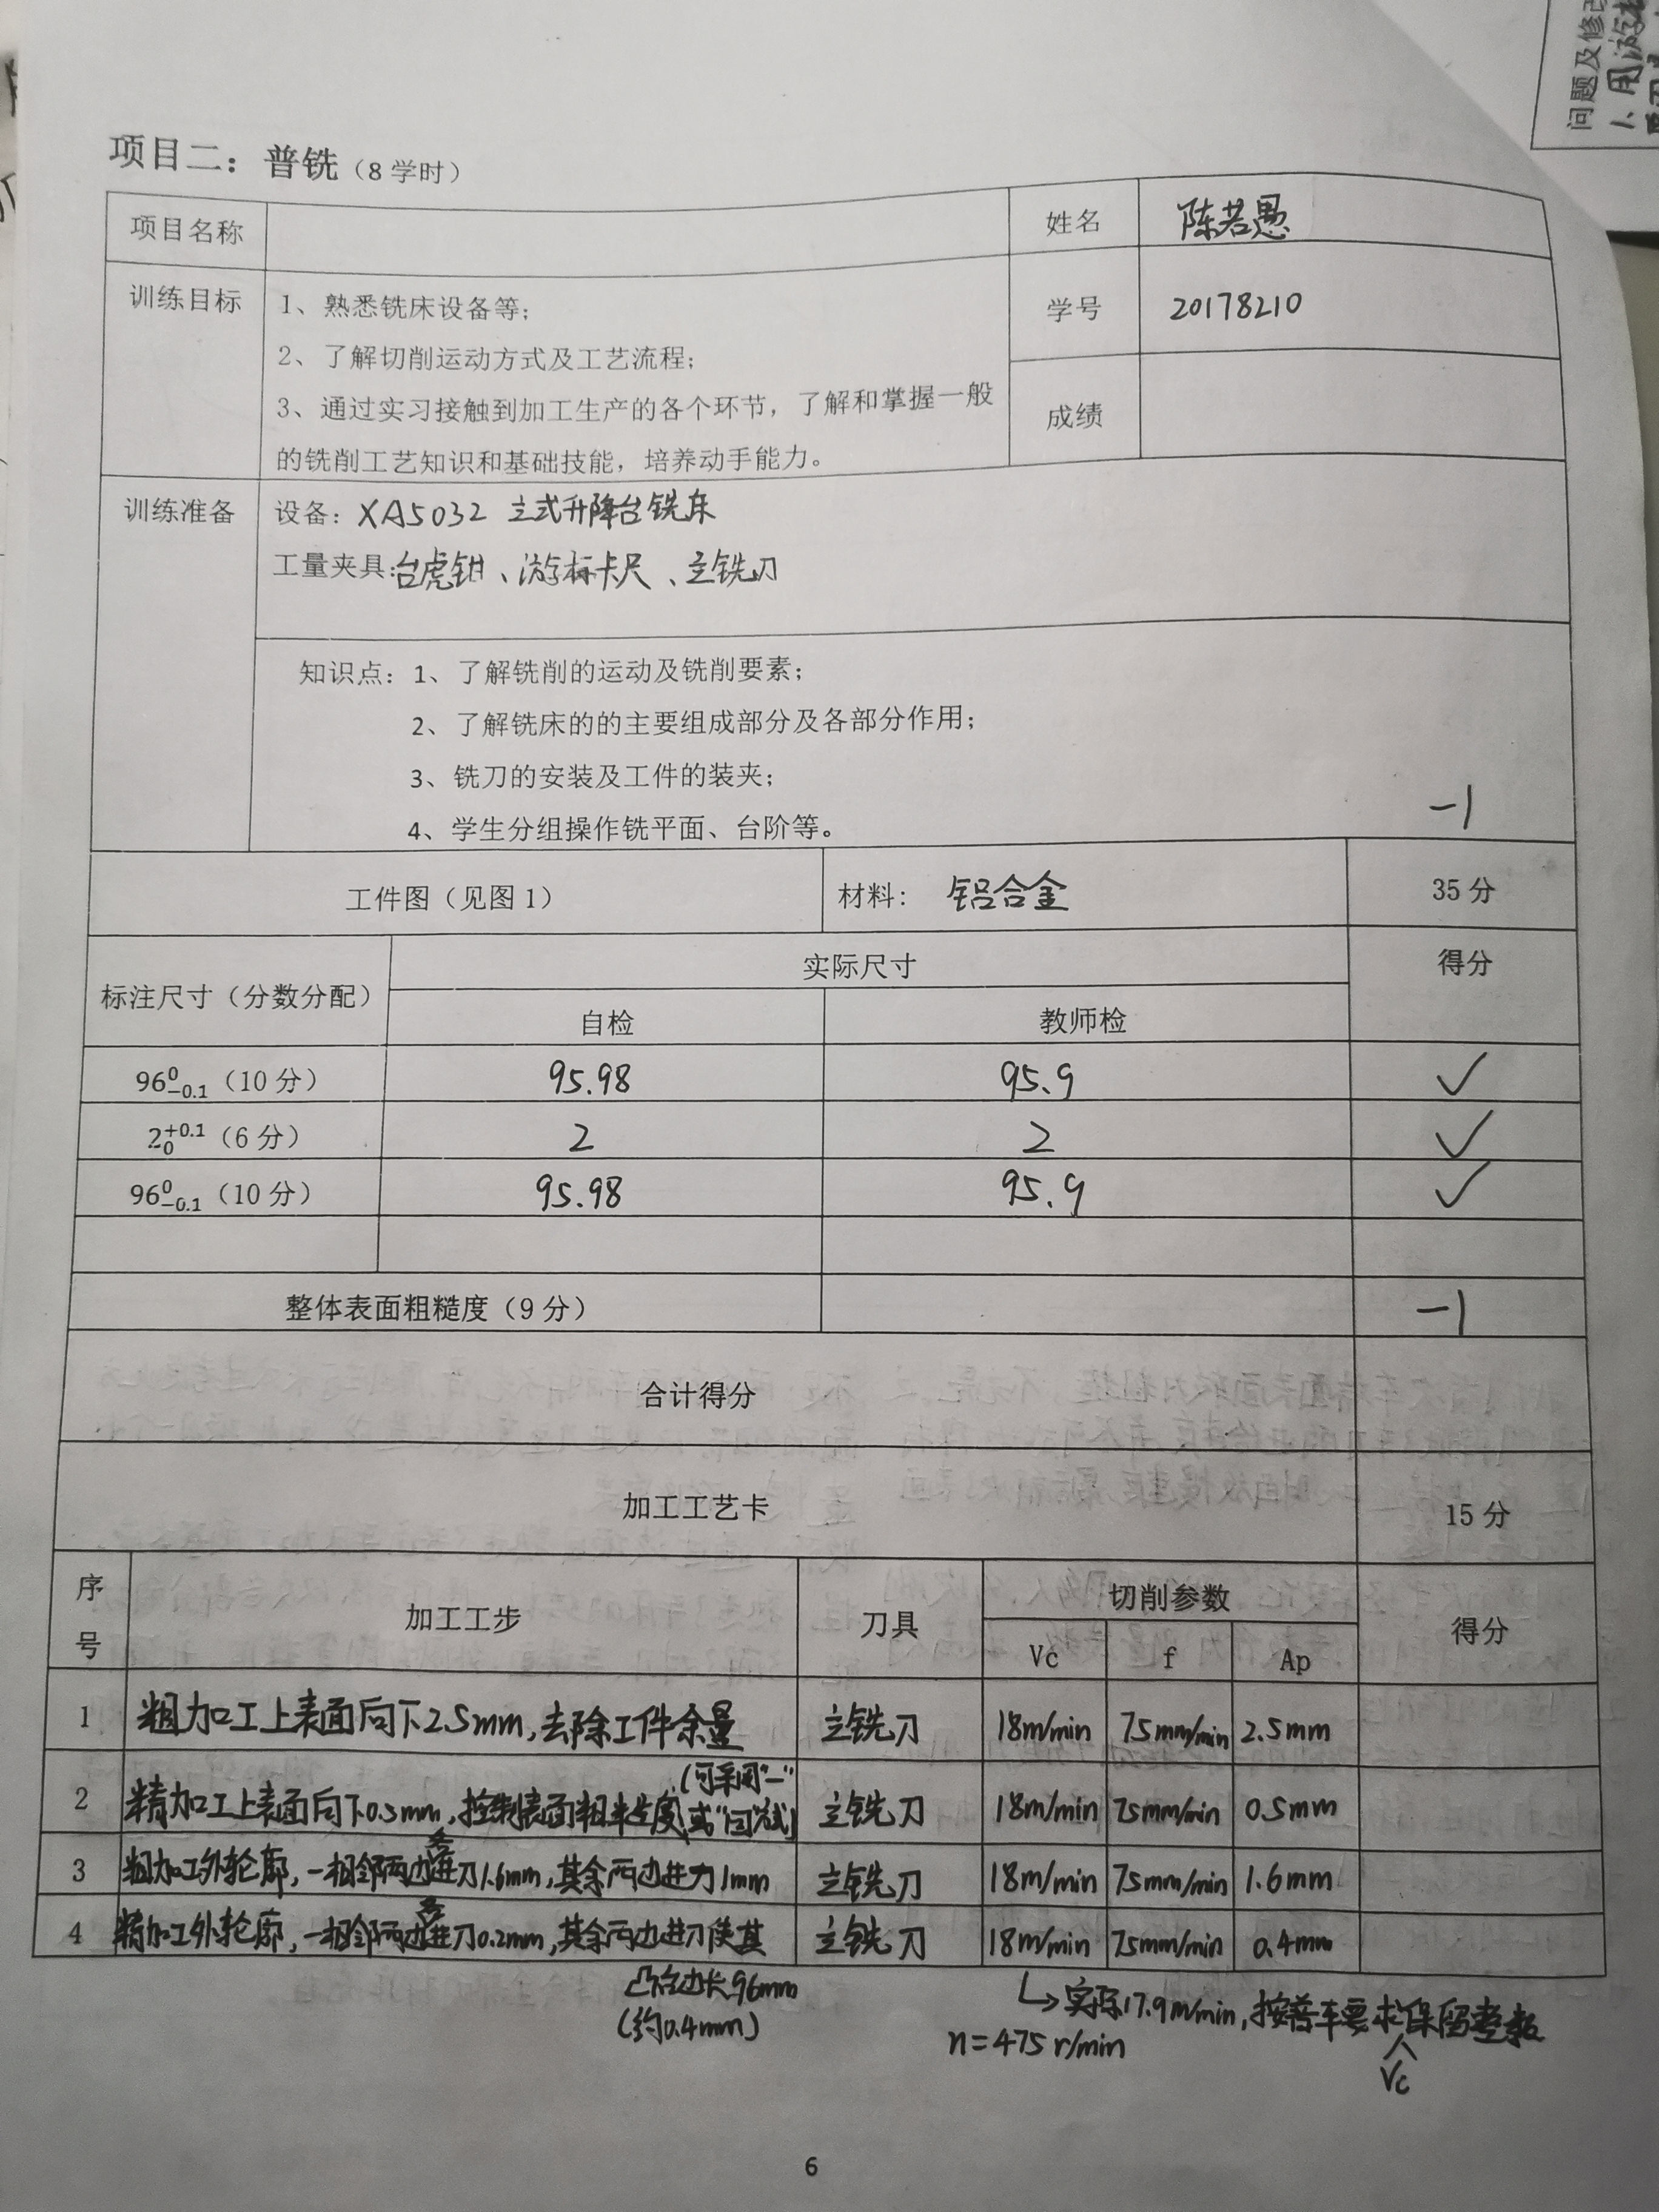 问题及修改
1、用游标
项目二：普铣（8学时）
项目名称
姓名 陈若愚
训练目标
1、熟悉铣床设备等；
2、了解切削运动方式及工艺流程；
3、通过实习接触到加工生产的各个环节，了解和掌握一般
的铣削工艺知识和基础技能，培养动手能力。
学号 20178210
成绩
训练准备
设备：XA5032 立式升降台铣床
工量夹具：台虎钳、游标卡尺、立铣刀
知识点：1、了解铣削的运动及铣削要素；
2、了解铣床的的主要组成部分及各部分作用；
3、铣刀的安装及工件的装夹；
4、学生分组操作铣平面、台阶等。
-1
工件图（见图1） 材料：铝合金 35分
标注尺寸（分数分配） 实际尺寸 得分
自检 教师检
96⁰₋₀.₁（10分） 95.98 95.9 ✓
2₀⁺⁰·¹（6分） 2 2 ✓
96⁰₋₀.₁（10分） 95.98 95.9 ✓
整体表面粗糙度（9分） -1
合计得分
加工工艺卡 15分
序号 加工工步 刀具 切削参数 得分
Vc f Ap
1 粗加工上表面向下2.5mm，去除工件余量 立铣刀 18m/min 75mm/min 2.5mm
(可采用"一"
2 精加工上表面向下0.5mm，控制表面粗糙度 或"回"式) 立铣刀 18m/min 75mm/min 0.5mm
3 粗加工外轮廓，一相邻两边各进刀1.6mm，其余两边进刀1mm 立铣刀 18m/min 75mm/min 1.6mm
4 精加工外轮廓，一相邻两边各进刀0.2mm，其余两边进刀使其 立铣刀 18m/min 75mm/min 0.4mm
凸台边长96mm
(约0.4mm)
↳实际17.9m/min，按普车要求Vc保留整数
n=475 r/min
6